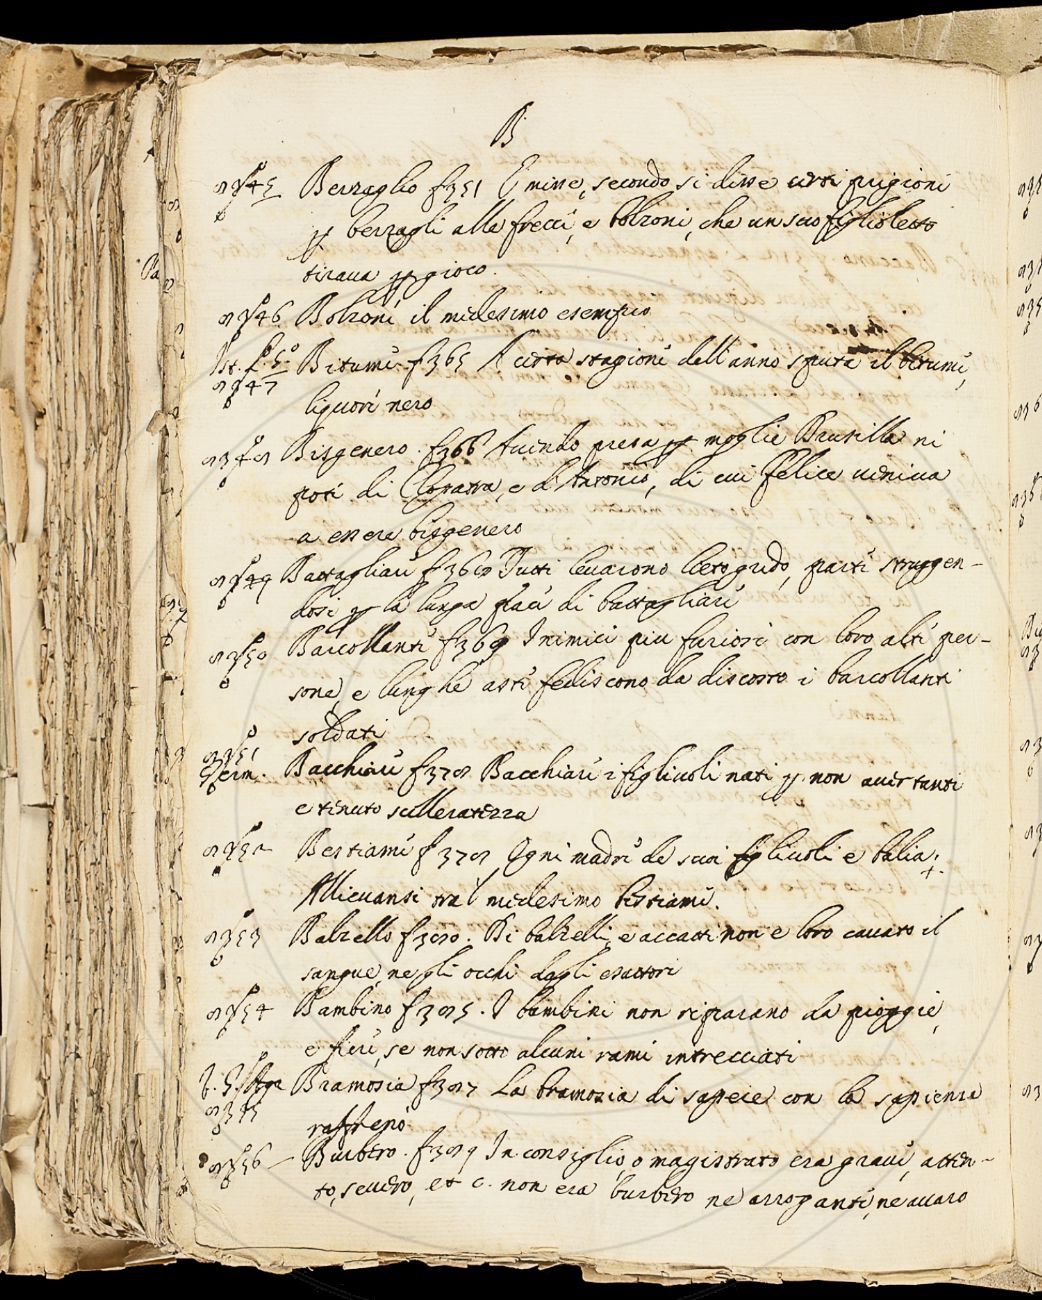 B
Berzaglio f351 E mise, secondo si disse certi prigioni
p berzagli alle frecci, e bolzoni, che un suo figlioletto
tirava p gioco.
Bolzoni il medesimo esempio
Bitume f365 A certa stagione dell'anno sputa il bitume,
liquori nero
Bisgenero. f366 Avendo presa p moglie Drusilla ni
poti di Cleopatra, e d'Antonio, di cui Felice veniva
a essere bisgenero
Battagliari f369 Tutti levarono lieto grido, parti struggen-
dosi p la lunga paci di battagliari
Barcollanti f369 I nimici piu furiosi con loro alti per-
sone, e lunghe asti fediscono da discosto i barcollanti
soldati
Bacchiari f372 Bacchiari i figlivoli nati p non avertanti
e tenuto scelleratezza
Bestiami f372 Ogni madri de suoi figlivoli e balia.
Allievansi tra'l medesimo bestiami.
Balzello f320. Di balzelli, e accatti non e loro cavato il
sangue, ne gli occhi dagli esattori
Bambino f325. I bambini non riparano da pioggie,
e fieri, se non sotto alcuni rami intrecciati
Bramosia f327 La bramosia di sapere con la sapienza
raffrenò
Burbero. f329 In consiglio, o magistrato era gravi, atten-
to, severo, et c. non era burbero ne arroganti, ne avaro